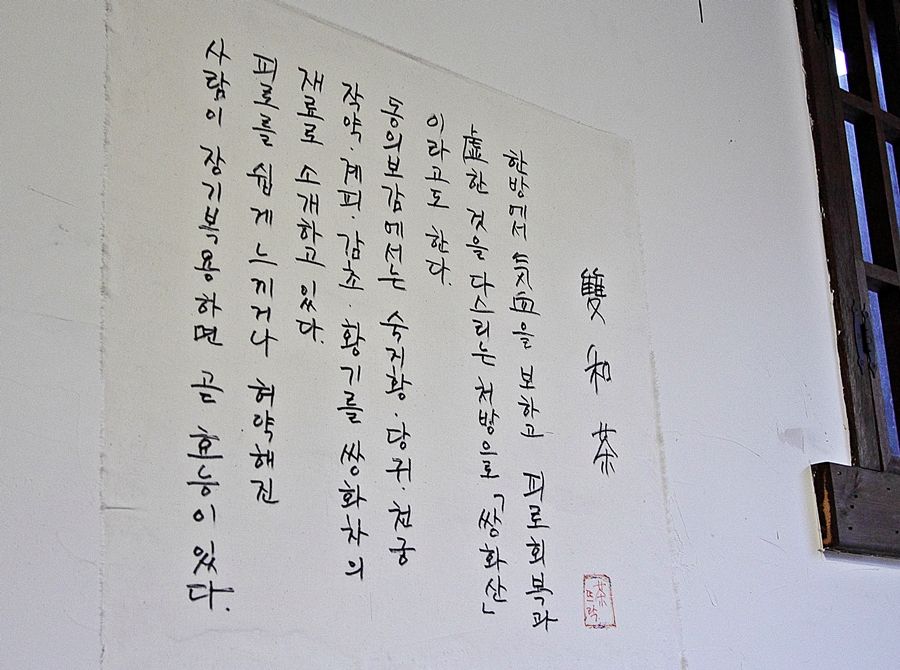 雙和茶
한방에서 気血을 보하고 피로회복과
虛한 것을 다스리는 처방으로 「쌍화산」
이라고도 한다.
동의보감에서는 숙지황·당귀·천궁
작약·계피·감초·황기를 쌍화차의
재료로 소개하고 있다.
피로를 쉽게 느끼거나 허약해진
사람이 장기복용하면 곧 효능이 있다.
茶
뜨락